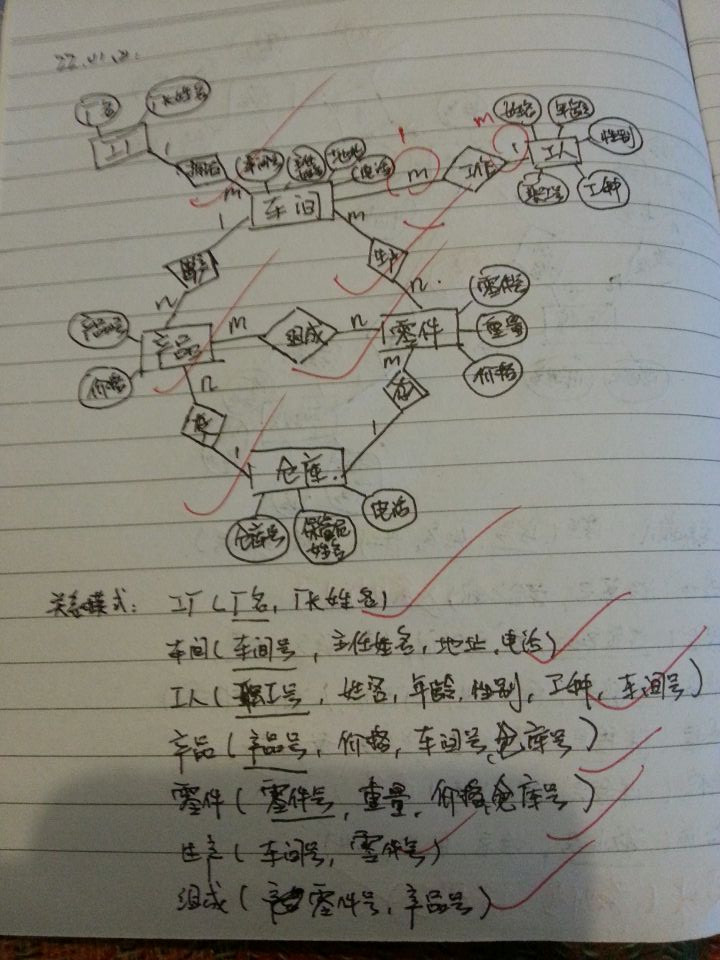 厂名 厂长姓名
工厂
1
m
车间号 主任姓名 地址 电话
车间
m 工作 1
1 m
姓名 年龄 性别
工人
职工号 工种
1 m
生产
n n
产品号
产品
价格
m 组成 n
零件号
零件 重量
价格
n m
存
1 1
仓库
仓库号 保管员姓名 电话
关系模式: 工厂(厂名, 厂长姓名)
车间(车间号, 主任姓名, 地址, 电话)
工人(职工号, 姓名, 年龄, 性别, 工种, 车间号)
产品(产品号, 价格, 车间号, 仓库号)
零件(零件号, 重量, 价格, 仓库号)
生产(车间号, 零件号)
组成(零件号, 产品号)